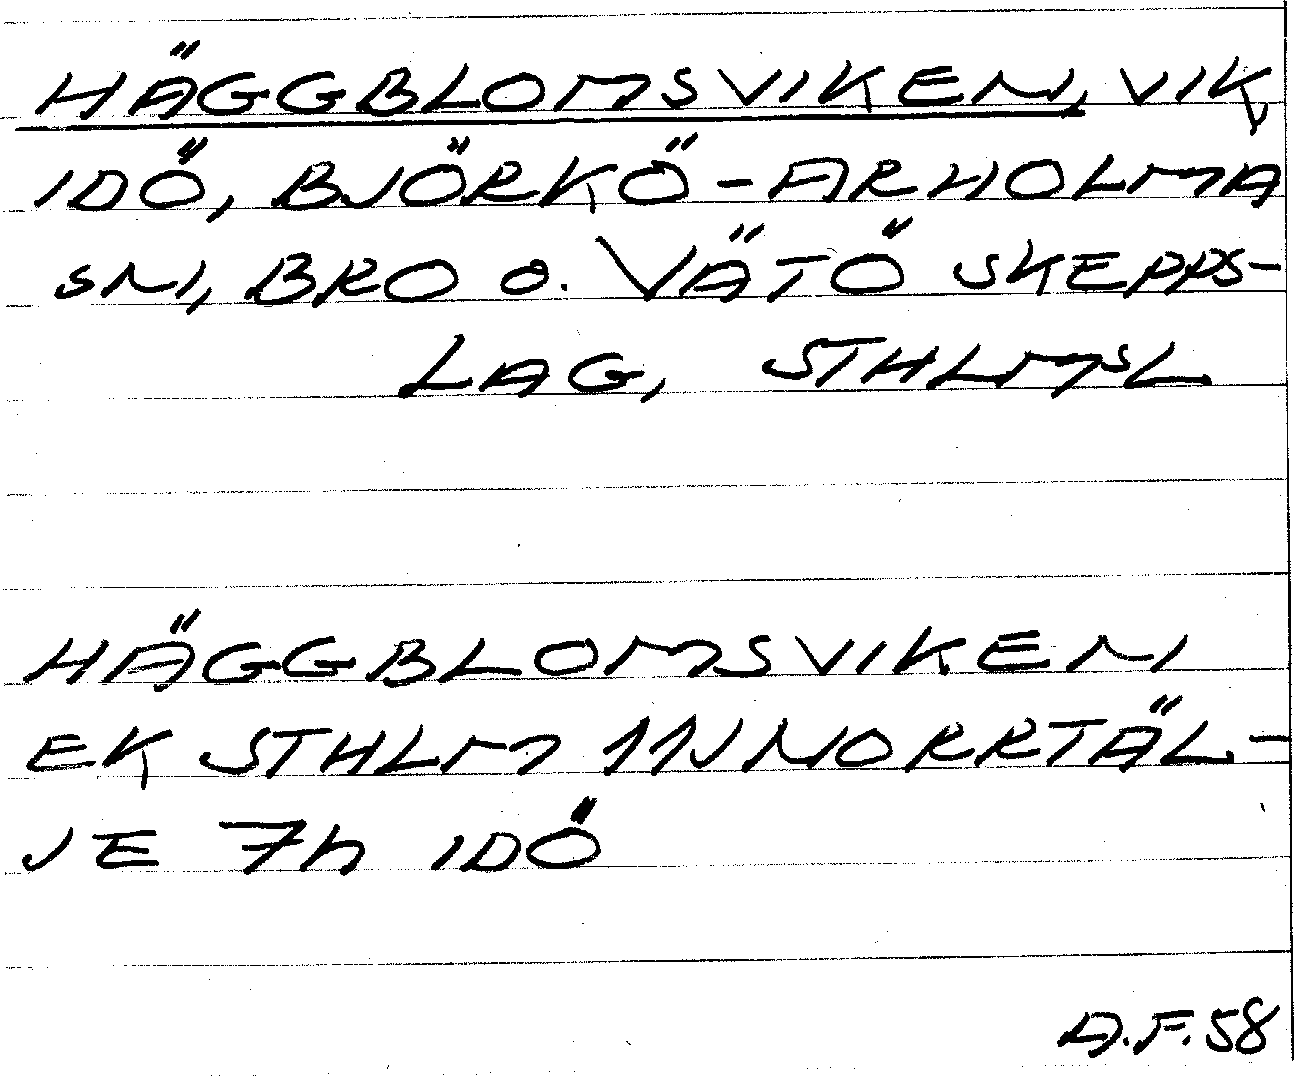 HÄGGBLOMSVIKEN, VIK
IDÖ, BJÖRKÖ-ARHOLMA
SN, BRO O. VÄTÖ SKEPPS-
LAG, STHLMSL
HÄGGBLOMSVIKEN
EK STHLM 11J NORRTÄL-
JE 7h IDÖ
A.F.58